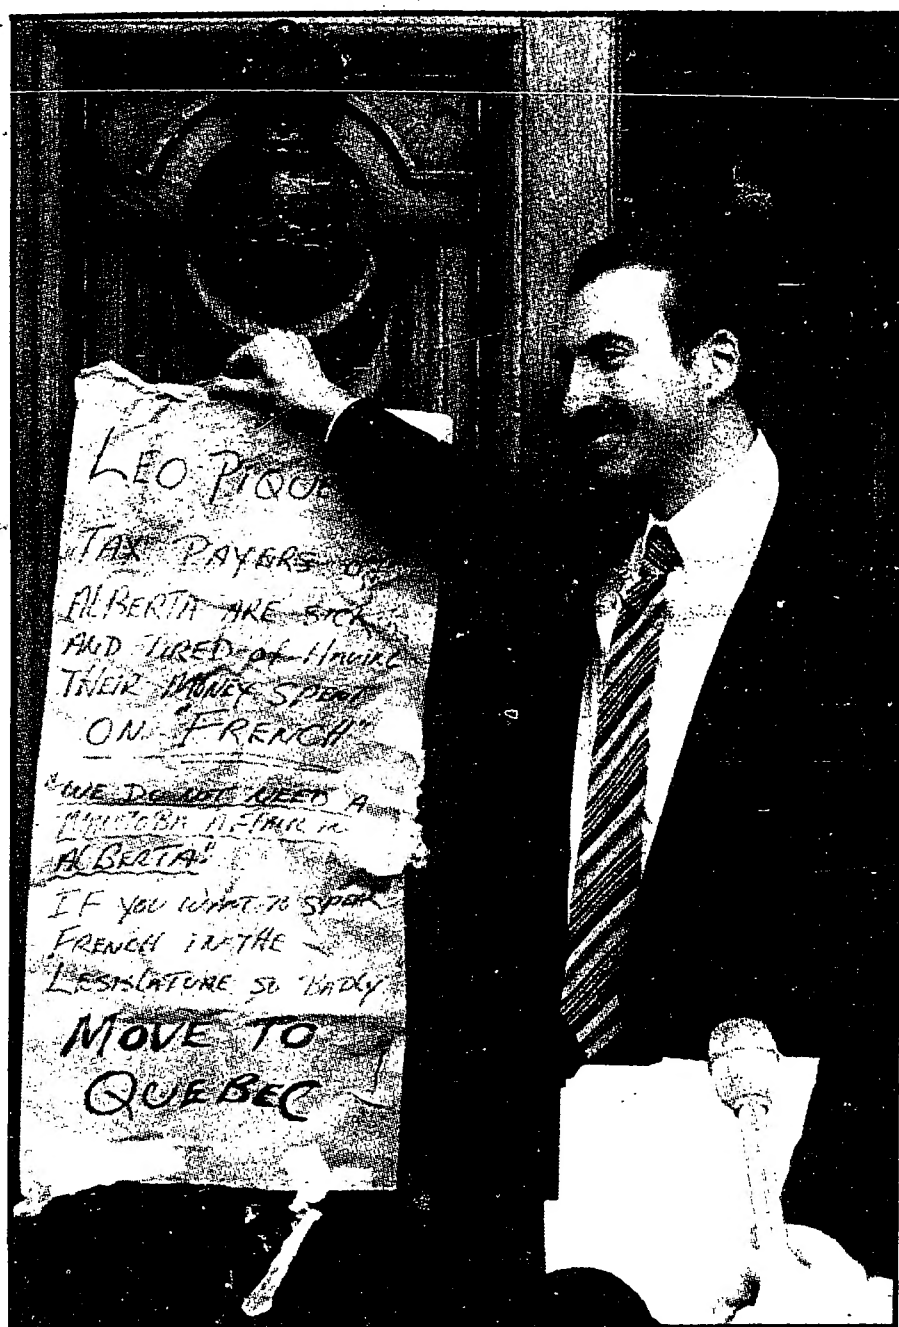 LEO PIQUE
TAX PAYERS OF
ALBERTA ARE SICK
AND TIRED of HAVING
THEIR MONEY SPENT
ON "FRENCH"
"WE DO NOT NEED A
MANITOBA AFFAIR IN
ALBERTA"
IF YOU WANT TO SPEAK
FRENCH IN THE
LEGISLATURE SO BADLY
MOVE TO
QUEBEC